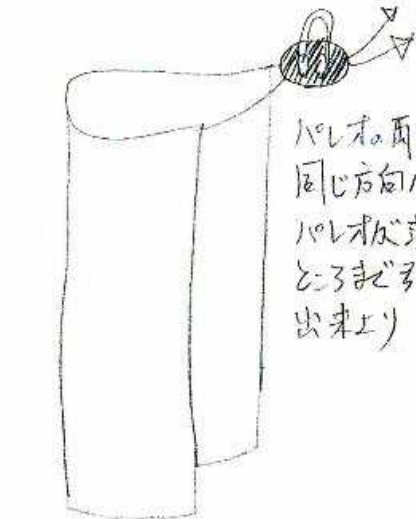 パレオの両
同じ方向へ
パレオが
ところまで
出来上り